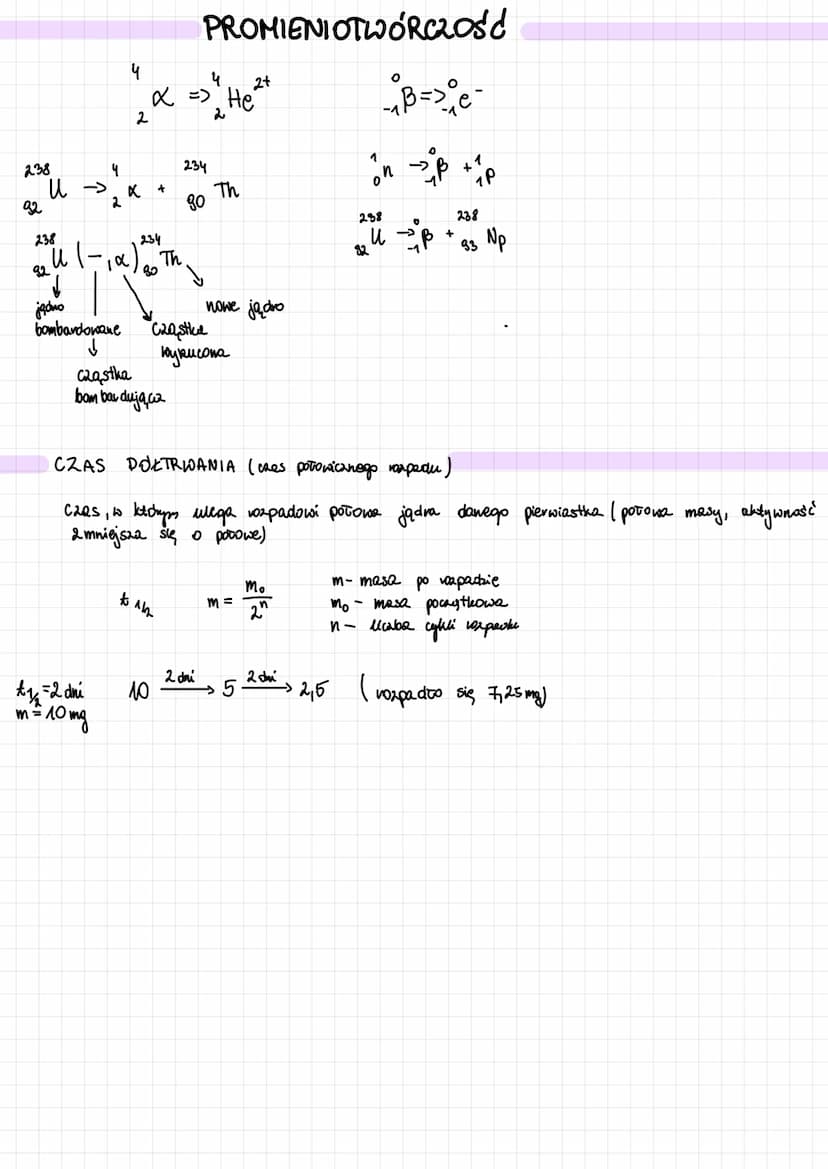 PROMIENIOTWÓRCZOŚĆ
⁴₂α => ⁴₂He²⁺
⁰₋₁β => ⁰₋₁e⁻
²³⁸₉₂U → ⁴₂α + ²³⁴₉₀Th
¹₀n → ⁰₋₁β + ¹₁p
²³⁸₉₂U (-,α) ²³⁴₉₀Th
²³⁸₉₂U → ⁰₋₁β + ²³⁸₉₃Np
jądro
bombardowane
cząstka
bombardująca
cząstka
wyrzucona
nowe jądro
CZAS PÓŁTRWANIA (czas połowicznego rozpadu)
czas, w którym ulega rozpadowi połowa jądra danego pierwiastka (połowa masy, aktywność
zmniejsza się o połowę)
t 1/2
m = m₀/2ⁿ
m- masa po rozpadzie
m₀ - masa początkowa
n - liczba cykli rozpadu
t 1/2 = 2 dni
m = 10 mg
10 2 dni → 5 2 dni → 2,5 (rozpadło się 7,25 mg)